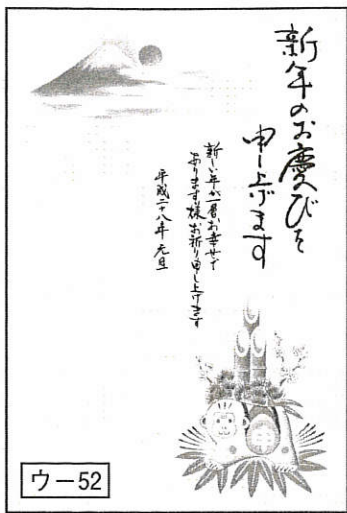 新年のお慶びを
申し上げます
新しい年が一番お幸せで
あります様お祈り申し上げます
平成二十八年 元旦
ウー52